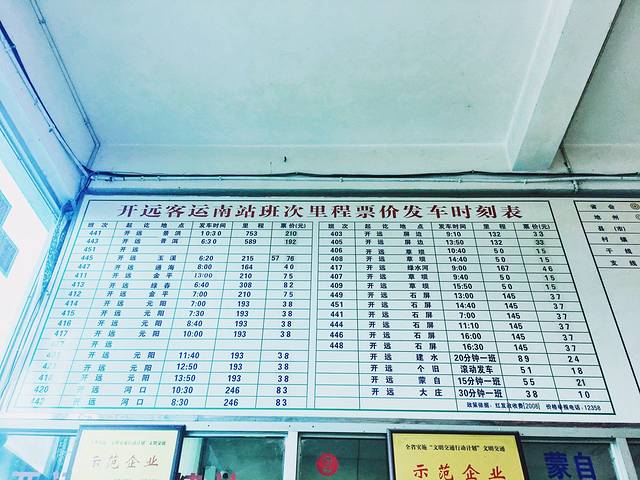 开远客运南站班次里程票价发车时刻表
班次 起讫地点 发车时间 里程 票价(元)
441 开远 景洪 10:30 753 210
443 开远 普洱 6:30 589 192
451 开远
445 开远 玉溪 6:20 215 57 76
447 开远 通海 8:00 164 40
411 开远 金平 13:00 210 75
413 开远 绿春 6:40 308 82
412 开远 金平 7:00 210 75
414 开远 元阳 7:00 193 38
415 开远 元阳 7:30 193 38
416 开远 元阳 8:40 193 38
417 开远 元阳 10:00 193 38
开远
开远 元阳 11:40 193 38
开远 元阳 12:50 193 38
开远 元阳 13:50 193 38
420 开远 河口 10:30 246 83
开远 河口 8:30 246 83
班次 起讫地点 发车时间 里程 票价(元)
403 开远 屏边 9:10 132 33
405 开远 屏边 13:50 132 33
406 开远 草坝 10:40 50 15
408 开远 草坝 14:40 50 15
417 开远 绿水河 9:00 167 46
407 开远 草坝 9:40 50 15
409 开远 草坝 15:50 50 15
449 开远 石屏 13:00 145 37
451 开远 石屏 14:40 145 37
441 开远 石屏 7:00 145 37
444 开远 石屏 11:10 145 37
446 开远 石屏 16:00 145 37
448 开远 石屏 16:30 145 37
开远 建水 20分钟一班 89 24
开远 个旧 滚动发车 51 18
开远 蒙自 15分钟一班 55 21
开远 大庄 30分钟一班 38 10
政策依据：红发改收费[2008] 价格举报电话：12358
省会
地州
县(市)
村镇
干线
支线
示范企业
全省实施“文明交通行动计划”文明交通
示范企业
蒙自